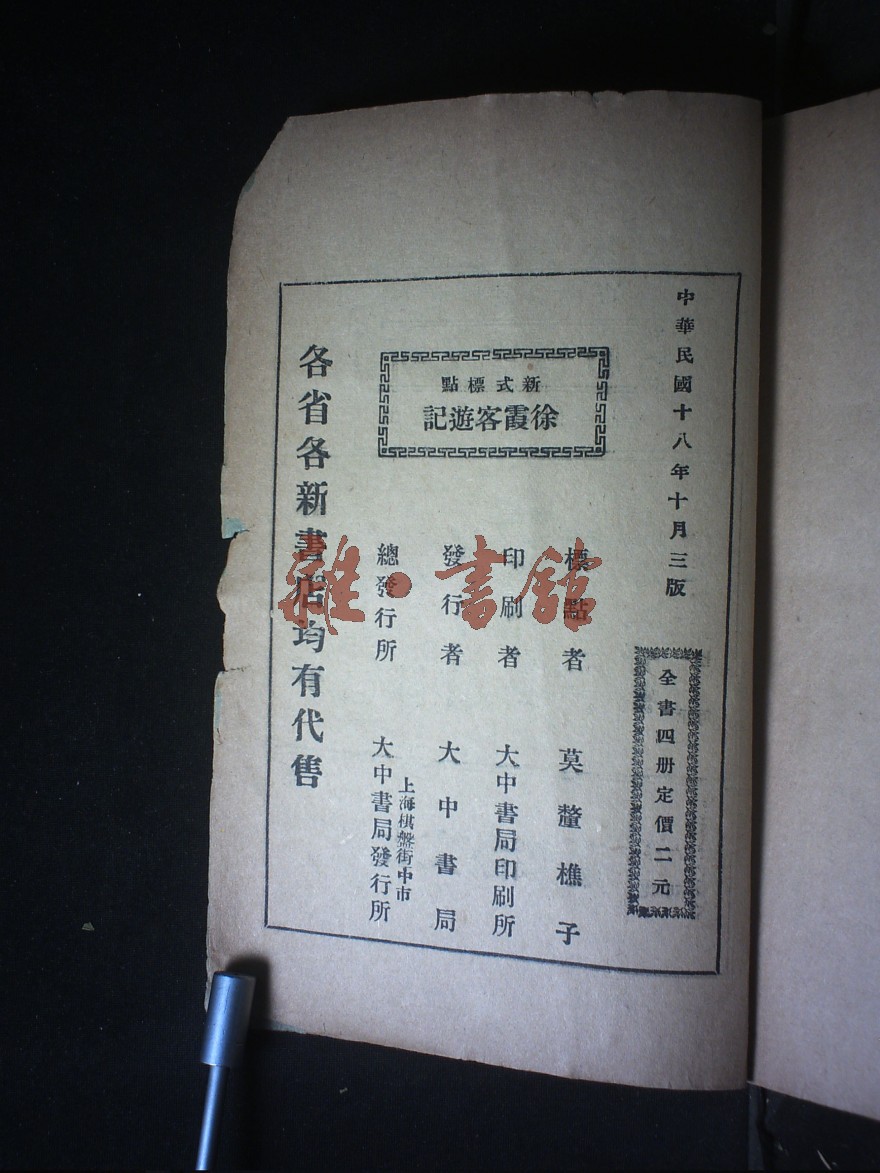 中華民國十八年十月三版
全書四册定價二元
新式標點
徐霞客遊記
標點者 莫釐樵子
印刷者 大中書局印刷所
發行者 大中書局
總發行所 上海棋盤街中市 大中書局發行所
各省各新書店均有代售
雜·書館